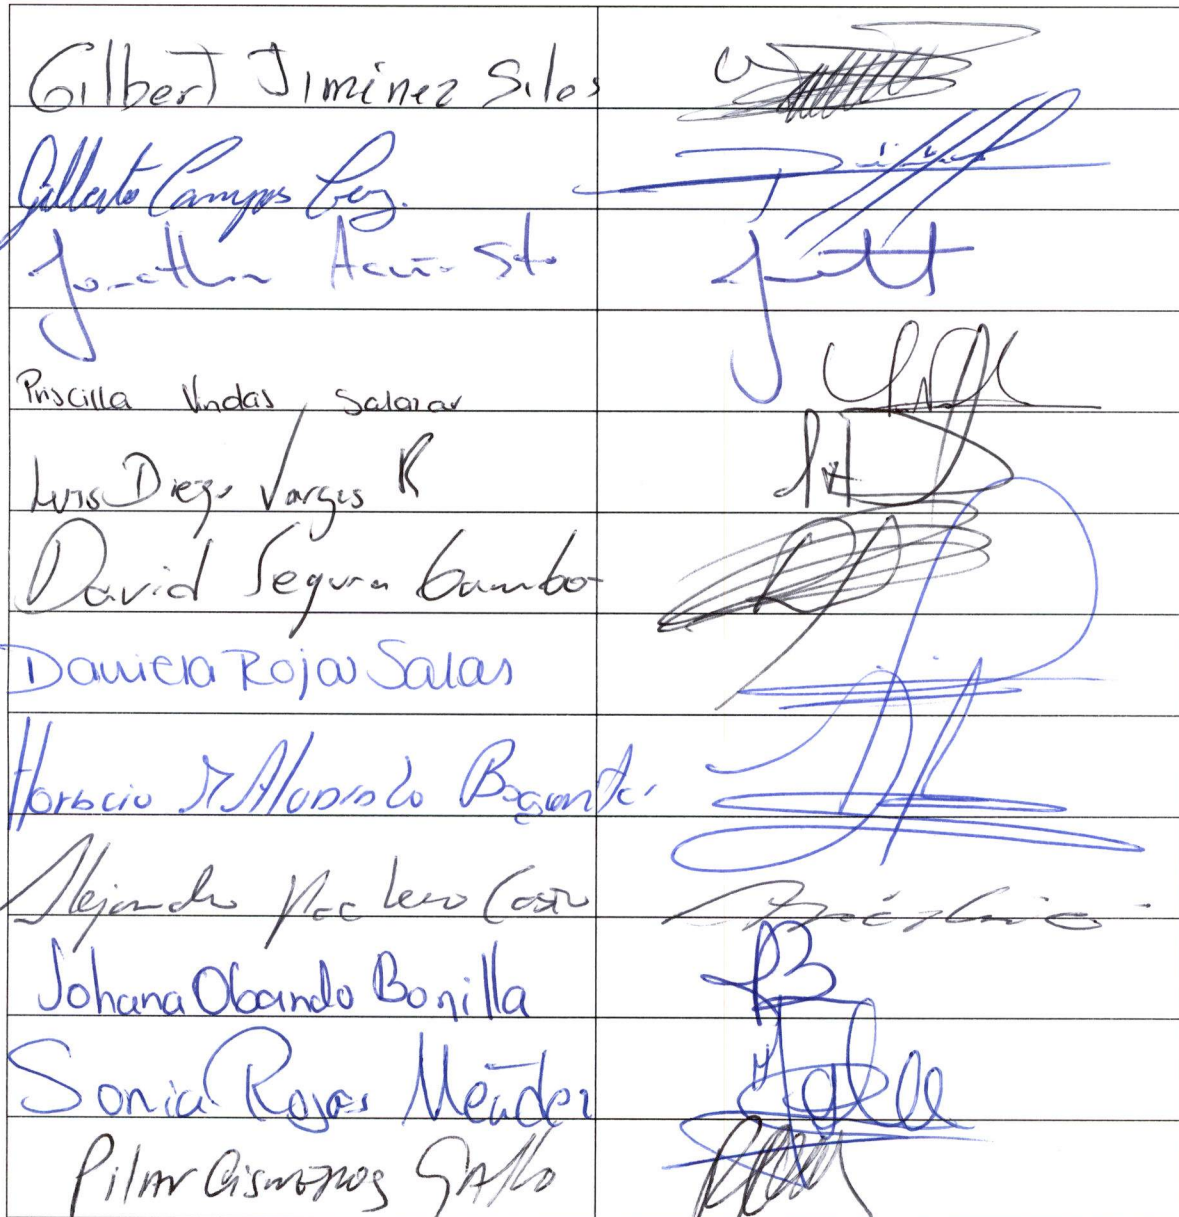 Gilbert Jiménez Siles
Gilberto Campos Cruz.
Jonathan Acuña Soto
Priscilla Vindas Salazar
Luis Diego Vargas R
David Segura Gamboa
Daniela Rojas Salas
Horacio M Alvarado Bogantes
Alejandro Pacheco Castro
Johana Obando Bonilla
Sonia Rojas Méndez
Pilar Cisneros Gallo